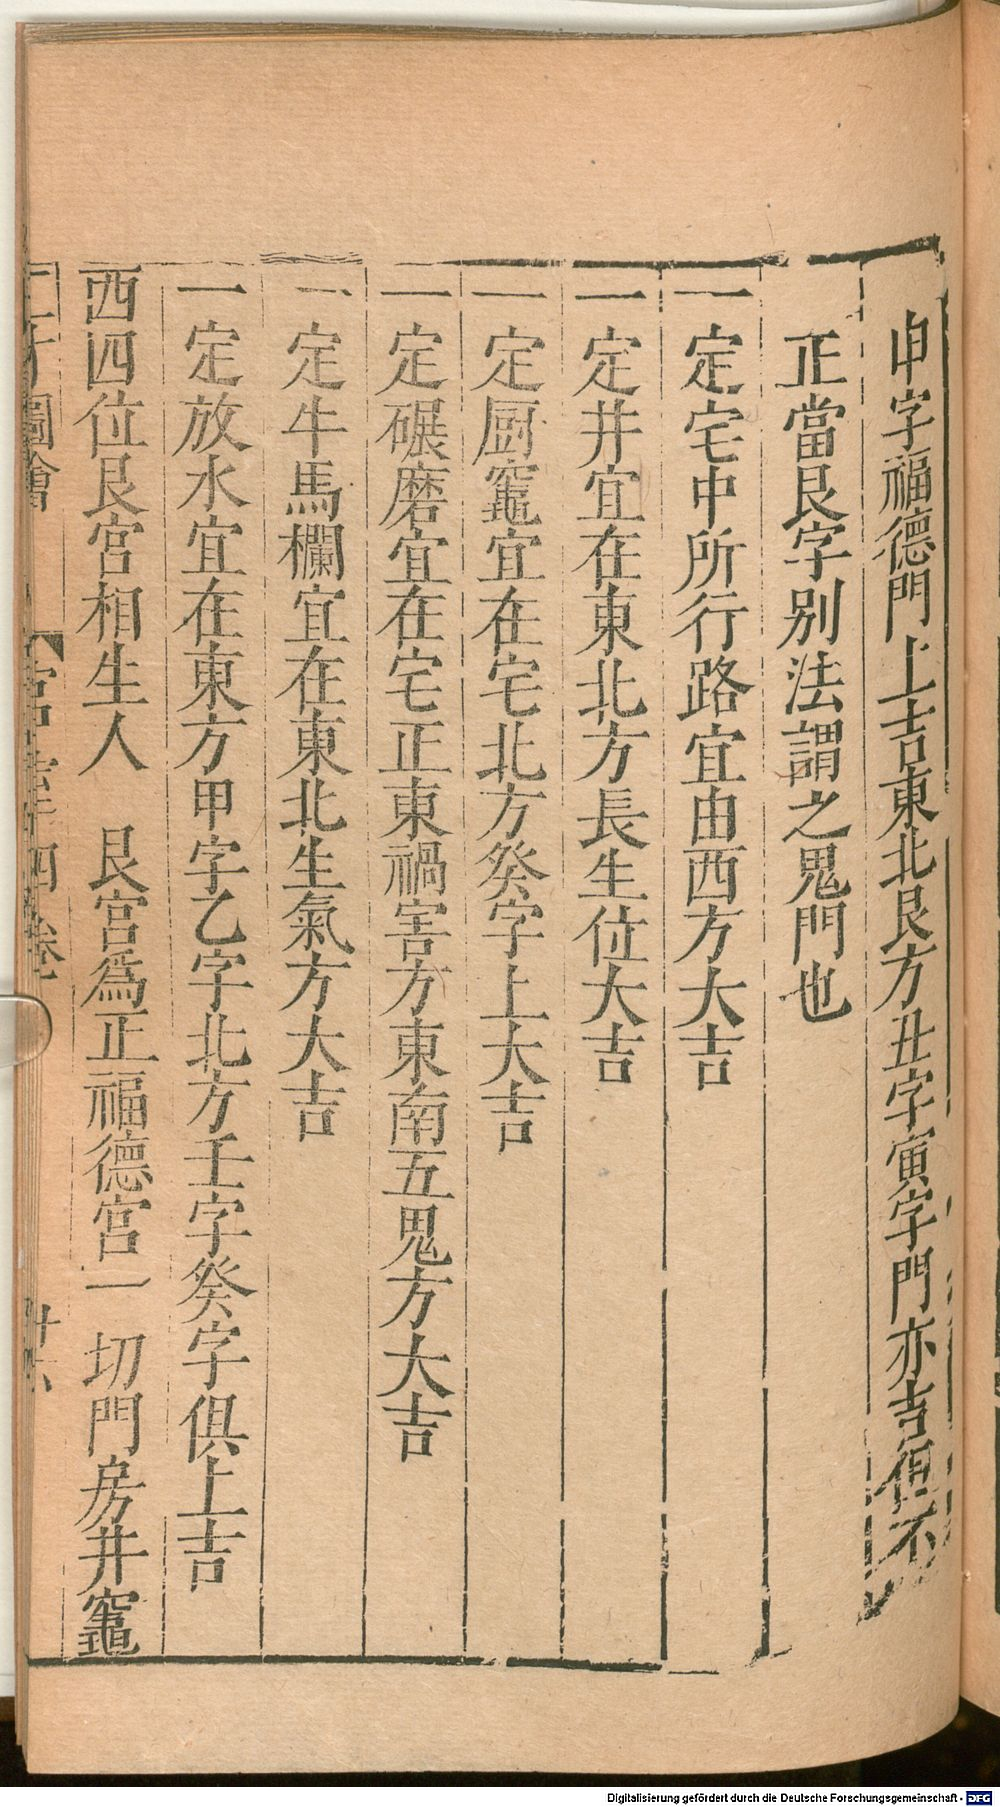 申字福德門上吉東北艮方丑字寅字門亦吉但不
正當艮字别法謂之鬼門也
一定宅中所行路宜由西方大吉
一定井宜在東北方長生位大吉
一定厨竈宜在宅北方癸字上大吉
一定碾磨宜在宅正東禍害方東南五鬼方大吉
一定牛馬欄宜在東北生氣方大吉
一定放水宜在東方甲字乙字北方壬字癸字俱上吉
西四位艮宮相生人 艮宮爲正福德宮一切門房井竈
圖會 宮室四卷 廿六
Digitalisierung gefördert durch die Deutsche Forschungsgemeinschaft - DFG